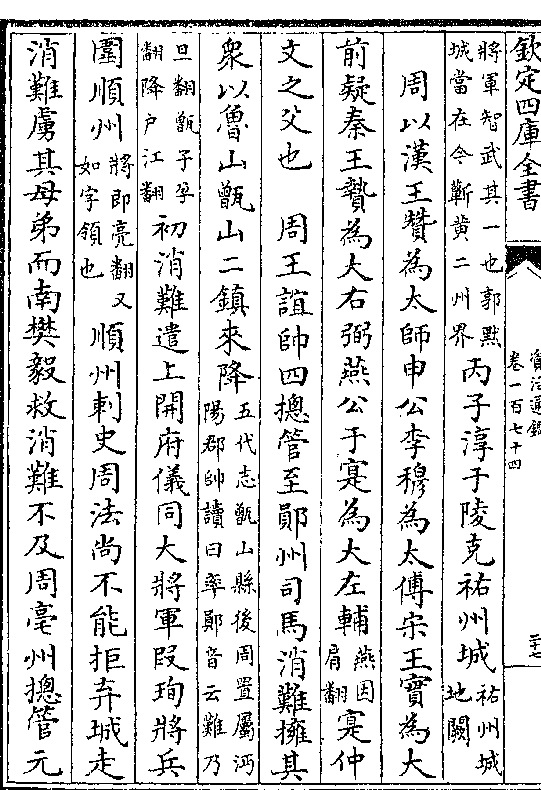 欽定四庫全書
資治通鑑
卷一百七十四
二十七
將軍智武其一也郭默
城當在今蘄黃二州界
丙子淳于陵克祐州城
祐州城
地闕
周以漢王贊為太師申公李穆為太傅宋王實為大
前疑秦王贄為大右弼燕公于寔為大左輔
燕因
肩翻
寔仲
文之父也 周王誼帥四摠管至鄖州司馬消難擁其
衆以魯山甑山二鎮來降
五代志甑山縣後周置屬沔
陽郡帥讀曰率鄖音云難乃
旦翻甑子孕
翻降户江翻
初消難遣上開府儀同大將軍段珣將兵
圍順州
將即亮翻又
如字領也
順州刺史周法尚不能拒弃城走
消難虜其母弟而南樊毅救消難不及周亳州摠管元